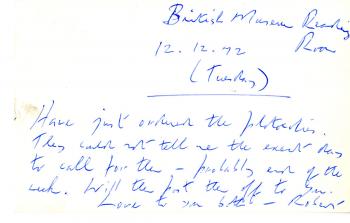 British Museum Reading
Room
12.12.72
(Tuesday)
Have just ordered the photocopies.
They could not tell me the exact day
to call for them – probably end of the
week. Will then post them off to you.
Love to you both – Robert